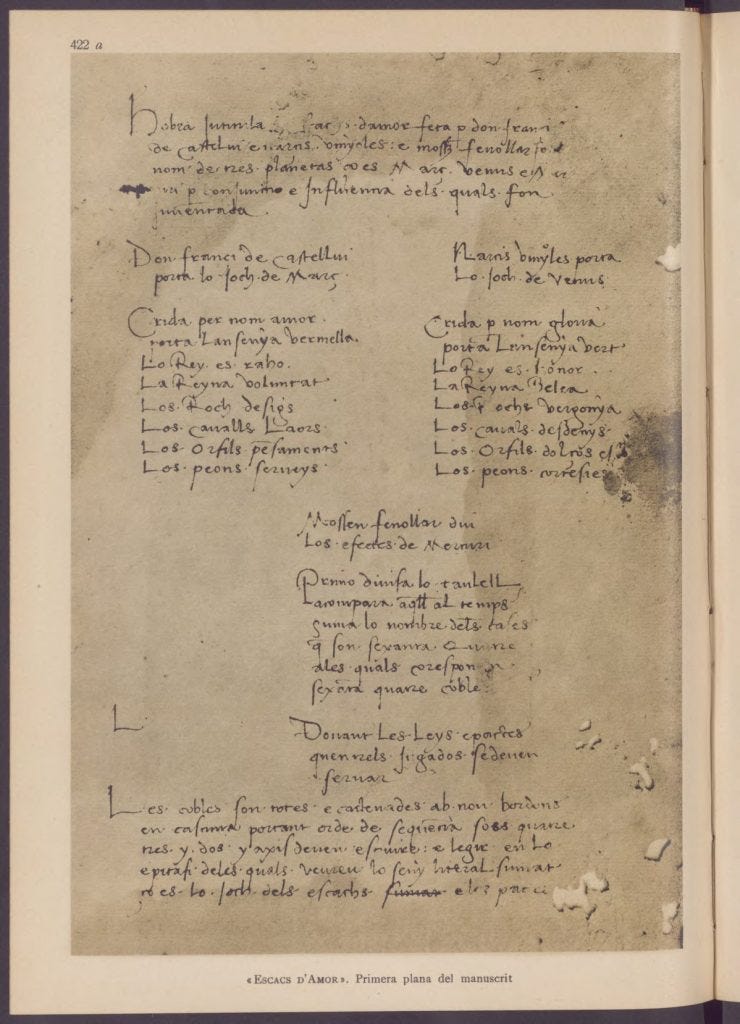 422 a
hobra Intitulada scachs damor feta p don franci
de Castelui e narcis vinyoles : e mossen fenollar so
nom de tres planetas ço es Març. Venus e
p conjunctio e Influentia dels quals fon
inuentada.
Don franci de Castellui
porta lo Joch de Març.
Crida per nom amor.
porta Lansenya vermella.
Lo Rey es raho.
La Reyna voluntat
Los Roch desigs
Los cavalls Laors
Los Orfils pensaments
Los peons serveys.
Narcis vinyoles porta
Lo Joch de Venus
Crida p nom gloria
porta Lensenya vert
Lo Rey es honor.
La Reyna Belea
Los Rochs vergonya
Los cavals desdenys.
Los Orfils dolços
Los peons cortesies
Mossen fenollar diu
Los efectes de Mercuri
Primo divisa lo taulell
Lacompara aqll al temps
suma lo nombre dels cases
q son sexanta quatre
ales quals corespon
sexāta quatre coble
L
Donant Les Leys e pactes
quentrels Jugados se deven
servar
Les cobles son totes encadenades ab nou bordons
en casuna portant orde de sequēcia sots quatre
tres y dos y axis deven escriure : e legir en Lo
epitafi deles quals veureu lo seny literal sumat
ço es lo Joch dels escachs sumat e los pac
«Escacs d'Amor». Primera plana del manuscrit